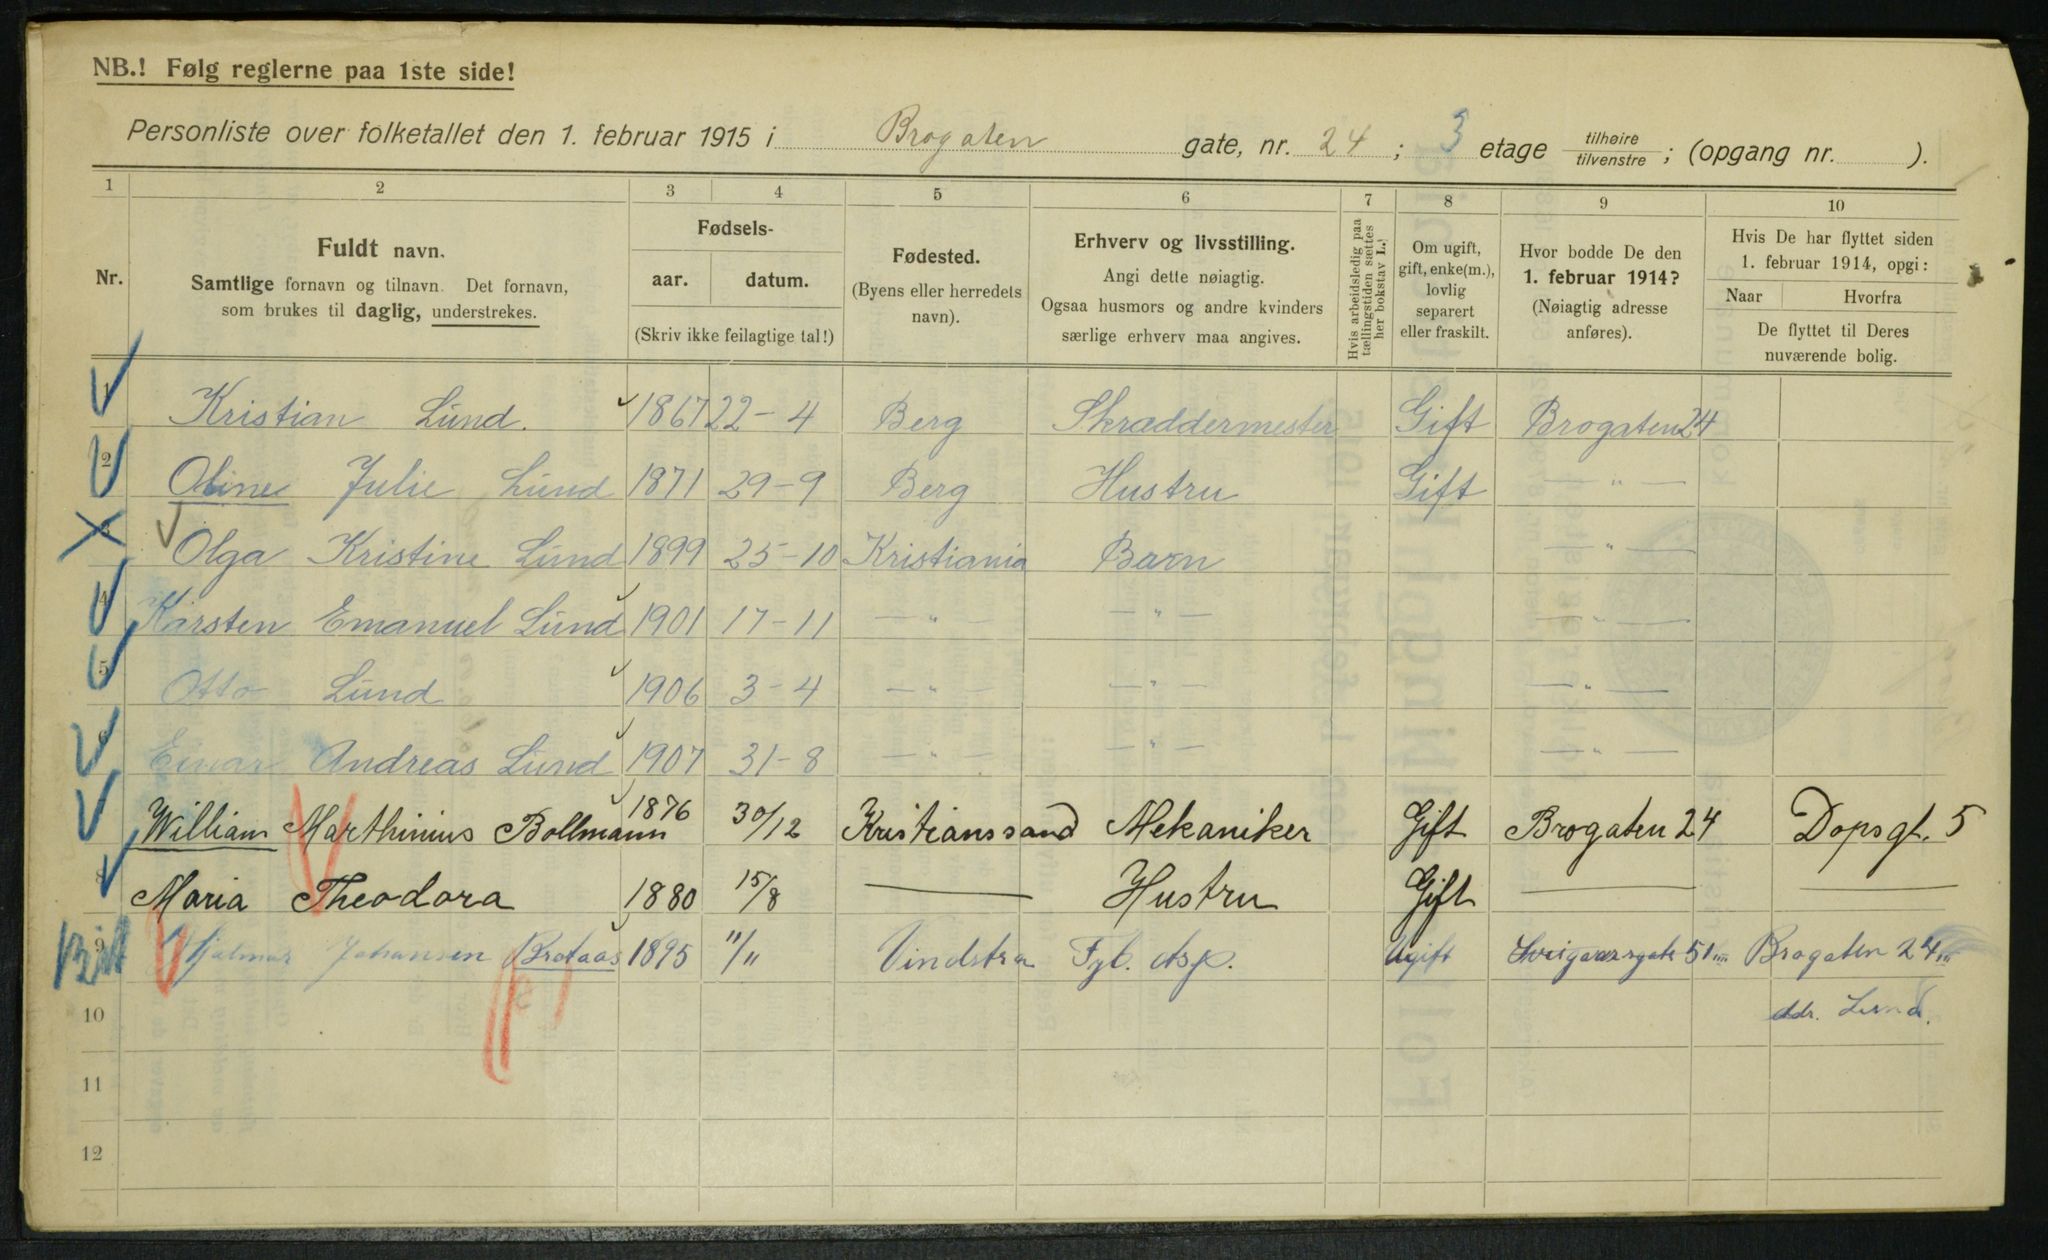 NB.! Følg reglerne paa 1ste side!
Personliste over folketallet den 1. februar 1915 i Brogaten gate, nr. 24; 3 etage tilhøire tilvenstre; (opgang nr. ).
1 2 3 4 5 6 7 8 9 10
Nr.
Fuldt navn.
Samtlige fornavn og tilnavn. Det fornavn,
som brukes til daglig, understrekes.
Fødsels-
aar. datum.
(Skriv ikke feilagtige tal!)
Fødested.
(Byens eller herredets
navn).
Erhverv og livsstilling.
Angi dette nøiagtig.
Ogsaa husmors og andre kvinders
særlige erhverv maa angives.
Hvis arbeidsledig paa
tællingstiden sættes
her bokstav L.!
Om ugift,
gift, enke(m.),
lovlig
separert
eller fraskilt.
Hvor bodde De den
1. februar 1914?
(Nøiagtig adresse
anføres).
Hvis De har flyttet siden
1. februar 1914, opgi:
Naar Hvorfra
De flyttet til Deres
nuværende bolig.
1 Kristian Lund. 1867 22-4 Berg Skræddermester Gift Brogaten 24
2 Oline Julie Lund 1871 29-9 Berg Hustru Gift — " —
3 Olga Kristine Lund 1899 25-10 Kristiania Barn — " —
4 Karsten Emanuel Lund 1901 17-11 — " — — " — — " —
5 Otto Lund 1906 3-4 — " — — " — — " —
6 Einar Andreas Lund 1907 31-8 — " — — " — — " —
William Marthinius Bollmann 1876 30/12 Kristianssand Mekaniker Gift Brogaten 24 Dopsgt. 5
8 Maria Theodora 1880 15/8 — Hustru Gift — —
9 Hjalmar Johansen Brataas 1895 11/11 Vindstra Fyb. Asp. Ugift 51 Brogaten 24
10 Lund.
11
12